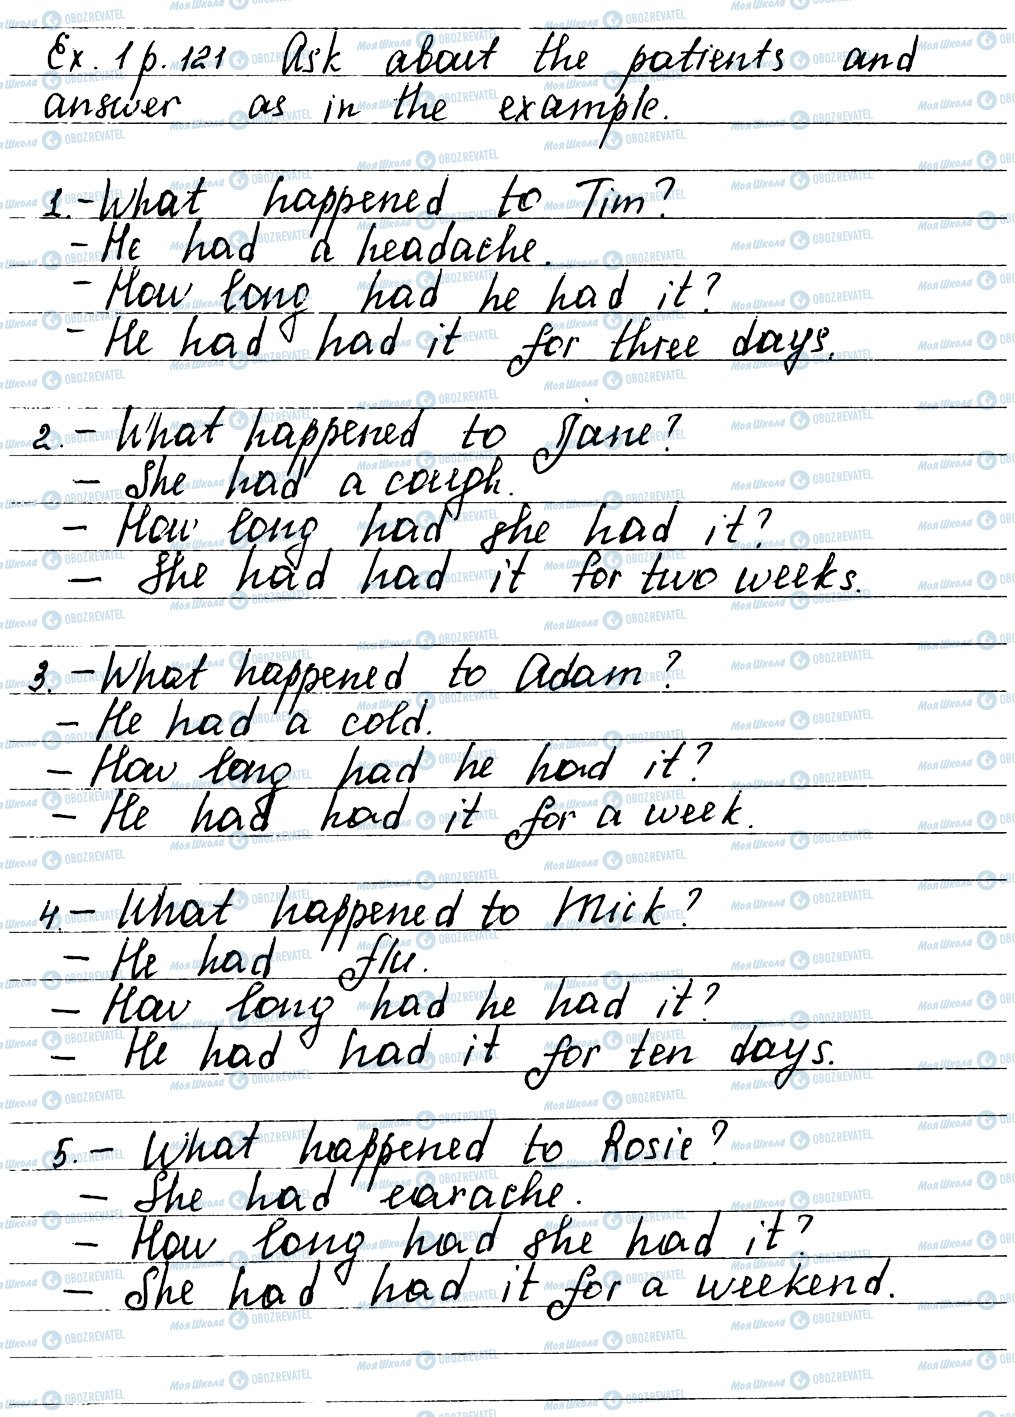 Ex. 1 p. 121 Ask about the patients and
answer as in the example.
1. - What happened to Tim?
- He had a headache.
- How long had he had it?
- He had had it for three days.
2. - What happened to Jane?
- She had a cough.
- How long had she had it?
- She had had it for two weeks.
3. - What happened to Adam?
- He had a cold.
- How long had he had it?
- He had had it for a week.
4. - What happened to Mick?
- He had flu.
- How long had he had it?
- He had had it for ten days.
5. - What happened to Rosie?
- She had earache.
- How long had she had it?
- She had had it for a weekend.